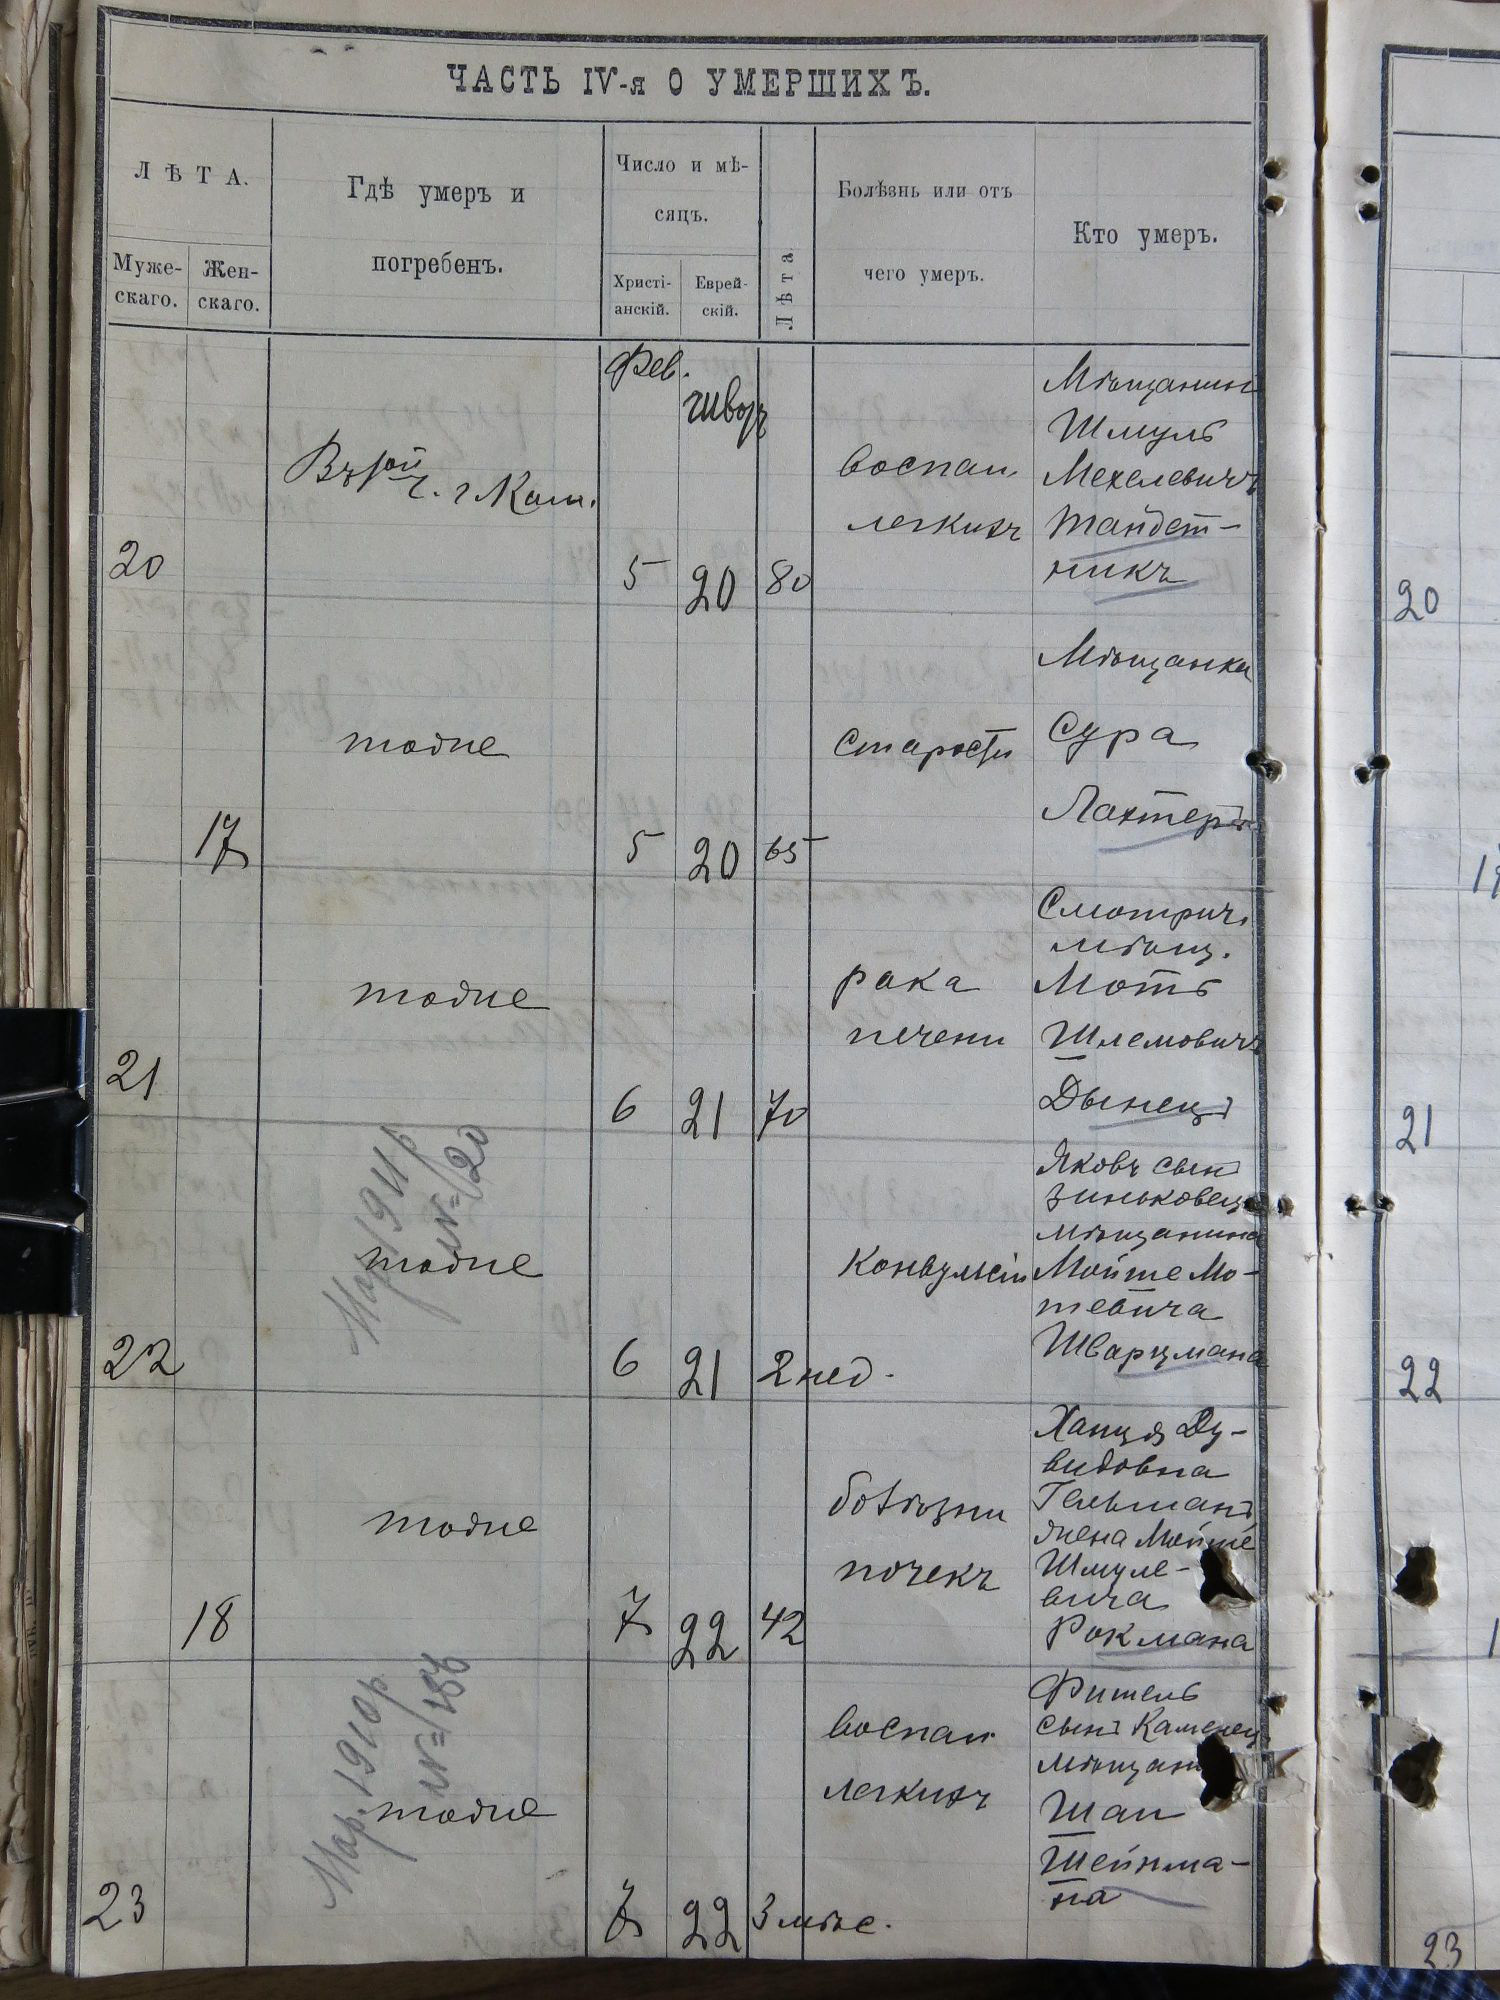 ЧАСТЬ IV-я О УМЕРШИХЪ.
ЛѢТА.
Муже-
скаго.
Жен-
скаго.
Гдѣ умеръ и
погребенъ.
Число и мѣ-
сяцъ.
Христі-
анскій.
Еврей-
скій.
Лѣта
Болѣзнь или отъ
чего умеръ.
Кто умеръ.
Фев.
20
г. Кам.
5
20
80
воспал.
легкихъ
Мѣщанинъ
Шмуль
Мехелевичъ
Тандет-
никъ
20
17
тоже
5
20
65
старости
Мѣщанка
Сура
Лахтеръ
21
тоже
6
21
70
рака
печени
Смотрич.
мѣщ.
Моть
Шлемовичъ
Дынецъ
21
22
Мар. 1911 г.
№ 20
тоже
6
21
2 нед.
конвульсіи
Яковъ сынъ
Зиньковец.
мѣщанина
Мойше Мо-
тевича
Шварцмана
22
18
тоже
7
22
42
болѣзни
почекъ
Ду-
видовна
Гельманъ
жена Мойше
Шмуле-
вича
Рокмана
23
Мар. 1910 г.
тоже
7
22
3 мѣс.
воспал.
легкихъ
Фишель
сынъ Каменец.
Шаи
Шейнма-
на
23